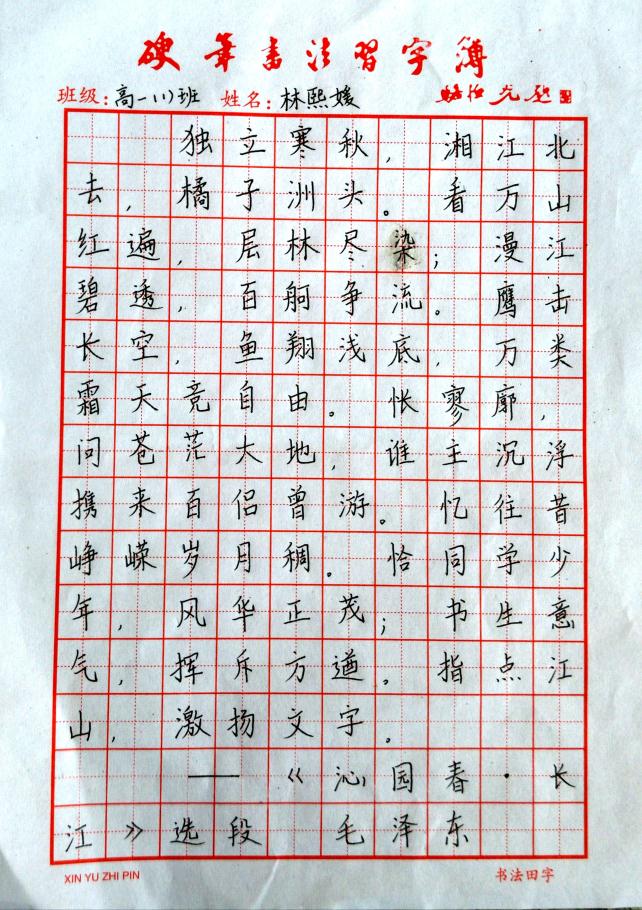 硬笔书法習字簿
班级:高一(1)班 姓名:林熙媛
独立寒秋,湘江北
去,橘子洲头。看万山
红遍,层林尽染;漫江
碧透,百舸争流。鹰击
长空,鱼翔浅底,万类
霜天竞自由。怅寥廓,
问苍茫大地,谁主沉浮
携来百侣曾游。忆往昔
峥嵘岁月稠。恰同学少
年,风华正茂;书生意
气,挥斥方遒。指点江
山,激扬文字。
——《沁园春·长
江》选段 毛泽东
XIN YU ZHI PIN 书法田字